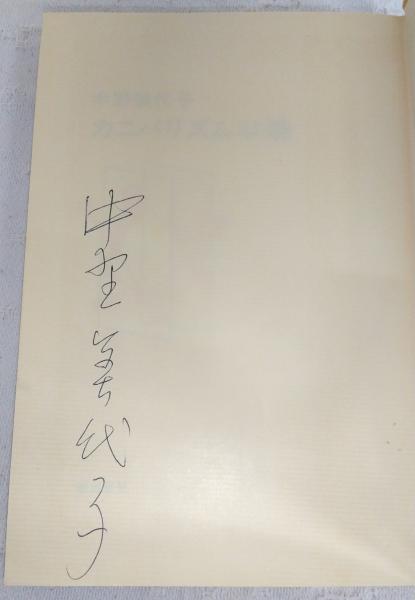 中野美代子
カニバリズム論
中野美代子